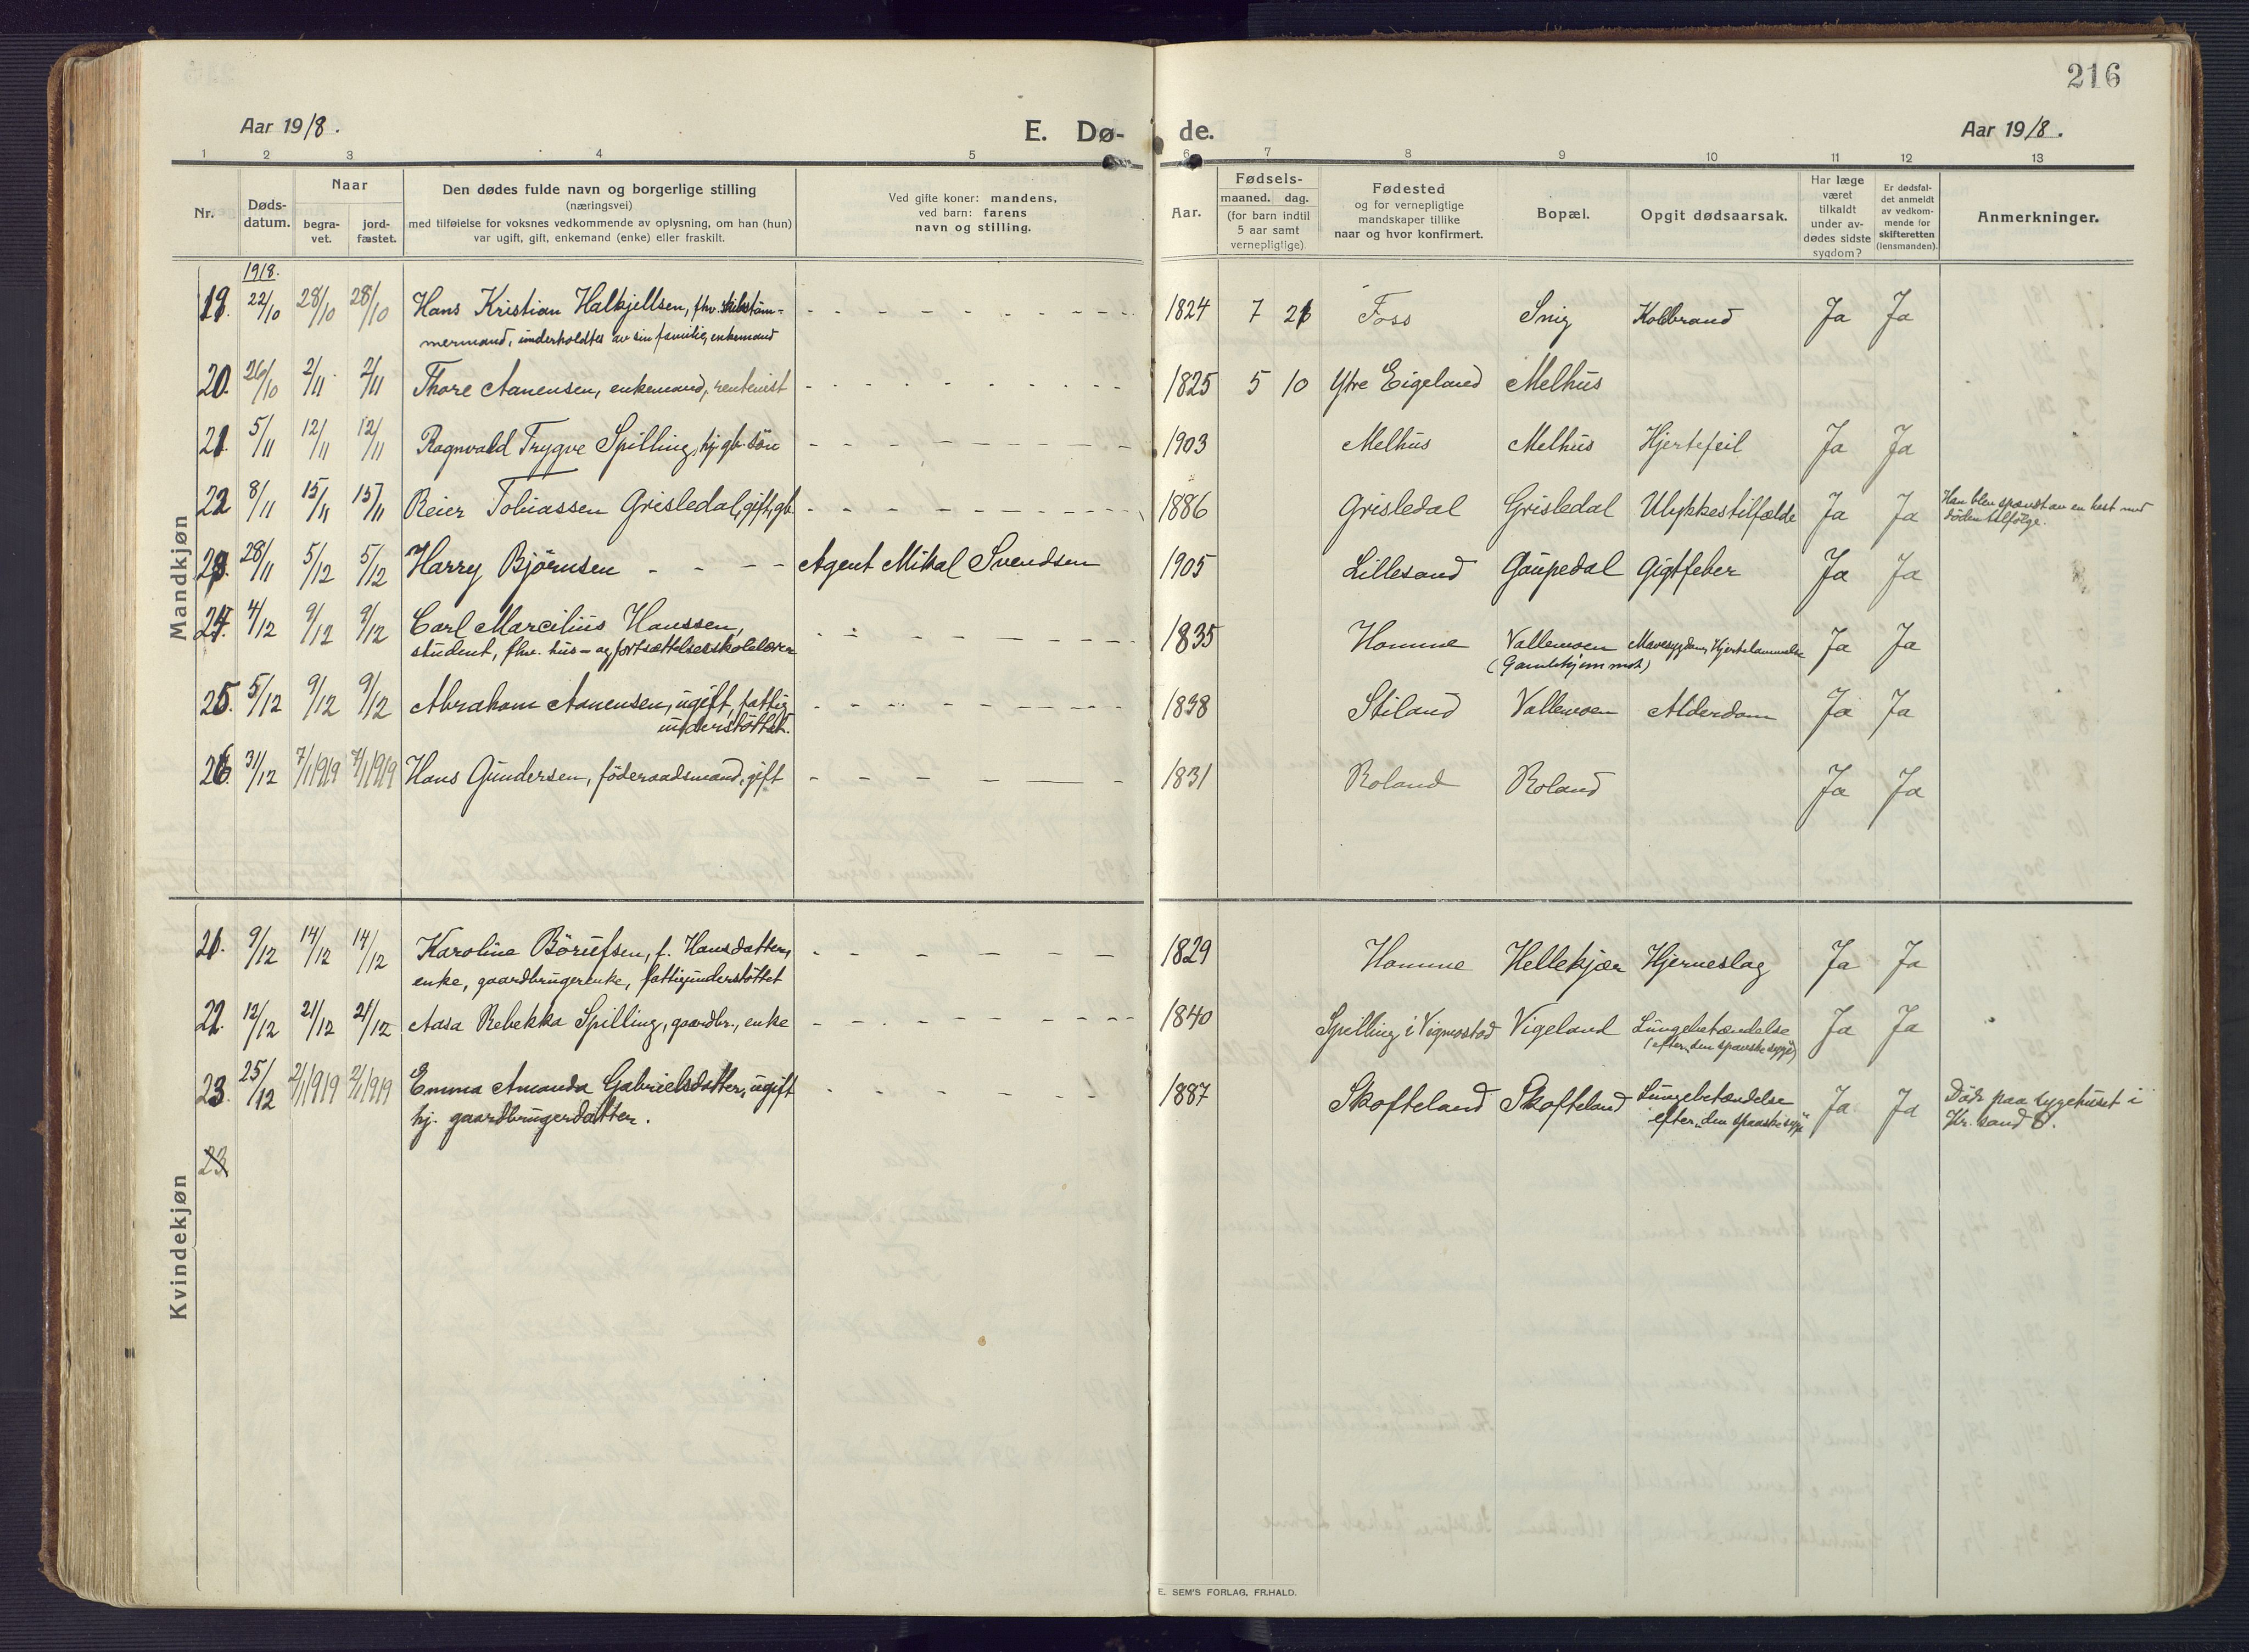 216
Aar 1918.
E. Dø-
de.
Aar 1918.
1 2 3 4 5 6 7 8 9 10 11 12 13
Nr.
Døds-
datum.
Naar
begra-
vet.
jord-
fæstet.
Den dødes fulde navn og borgerlige stilling
(næringsvei)
med tilføielse for voksnes vedkommende av oplysning, om han (hun)
var ugift, gift, enkemand (enke) eller fraskilt.
Ved gifte koner: mandens,
ved barn: farens
navn og stilling.
Aar.
Fødsels-
maaned. dag.
(for barn indtil
5 aar samt
vernepligtige)
Fødested
og for vernepligtige
mandskaper tillike
naar og hvor konfirmert.
Bopæl.
Opgit dødsaarsak.
Har læge
været
tilkaldt
under av-
dødes sidste
sygdom?
Er dødsfal-
det anmeldt
av vedkom-
mende for
skifteretten
(lensmanden).
Anmerkninger.
Mandkjøn
1918.
19. 22/10 28/10 28/10 Hans Kristian Halkjellsen, fhv. skibstøm- 1824 7 21 Foss Snig Koldbrand Ja Ja
mermand, underholdtes av sin familie, enkemand
20. 26/10 2/11 2/11 Thore Aanensen, enkemand, rentenist 1825 5 10 Ytre Eigeland Melhus
21. 5/11 12/11 12/11 Ragnvald Trygve Spilling, hj. gb. søn 1903 Melhus Melhus Hjertefeil Ja Ja
22 8/11 15/11 15/11 Reier Tobiassen Grisledal, gift, gb. 1886 Grisledal Grisledal Ulykkestilfælde Ja Ja Han blev spændt av en hest med
døden tilfølge.
23. 28/11 5/12 5/12 Harry Bjørnsen Agent Mikal Svendsen 1905 Lillesand Gaupedal Gigtfeber Ja Ja
24. 4/12 9/12 9/12 Carl Marcilius Hanssen, 1835 Homme Vallemoen Mavesygdom, Hjertelammelse Ja Ja
student, fhv. hus- og fortsættelsesskolelærer (Gamlehjemmet)
25. 5/12 9/12 9/12 Abraham Aanensen, ugift, fattig 1838 Stiland Vallemoen Alderdom Ja Ja
understøttet.
26. 31/12 7/1 1919 7/1 1919 Hans Gundersen, føderaadsmand, gift 1831 Roland Roland Ja Ja
Kvindekjøn
21. 9/12 14/12 14/12 Karoline Börufsen, f. Hansdatter, 1829 Homme Hellekjær Hjerneslag Ja Ja
enke, gaardbrugerenke, fattigunderstøttet
22. 12/12 21/12 21/12 Aasa Rebekka Spilling, gaardbr., enke 1840 Spilling i Vigmostad Vigeland Lungebetændelse Ja Ja
(efter "den spanske syge")
23. 25/12 2/1 1919 2/1 1919 Emma Amanda Gabrielsdatter, ugift 1887 Skofteland Skofteland Lungebetændelse Ja Ja Døde paa sygehuset i
hj. gaardbrugerdatter. efter "den spanske syge" Kr. sand S.
23
E. SEM'S FORLAG, FR.HALD.